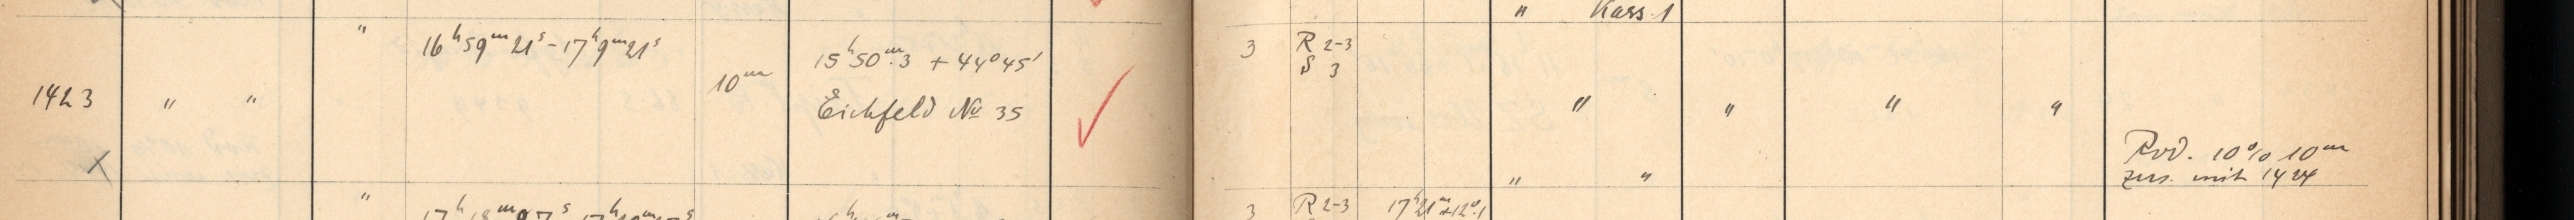 " Kass. 1
" 16ʰ59ᵐ21ˢ-17ʰ9ᵐ21ˢ 3 R 2-3
15ʰ50ᵐ.3 + 44°45' S 3
10ᵐ
1423 " " Eichfeld No 35 " " " "
Rod. 10% 10ᵐ
X " " zus. mit 1424
" 3 R 2-3 17ʰ21ᵐ+12°.1